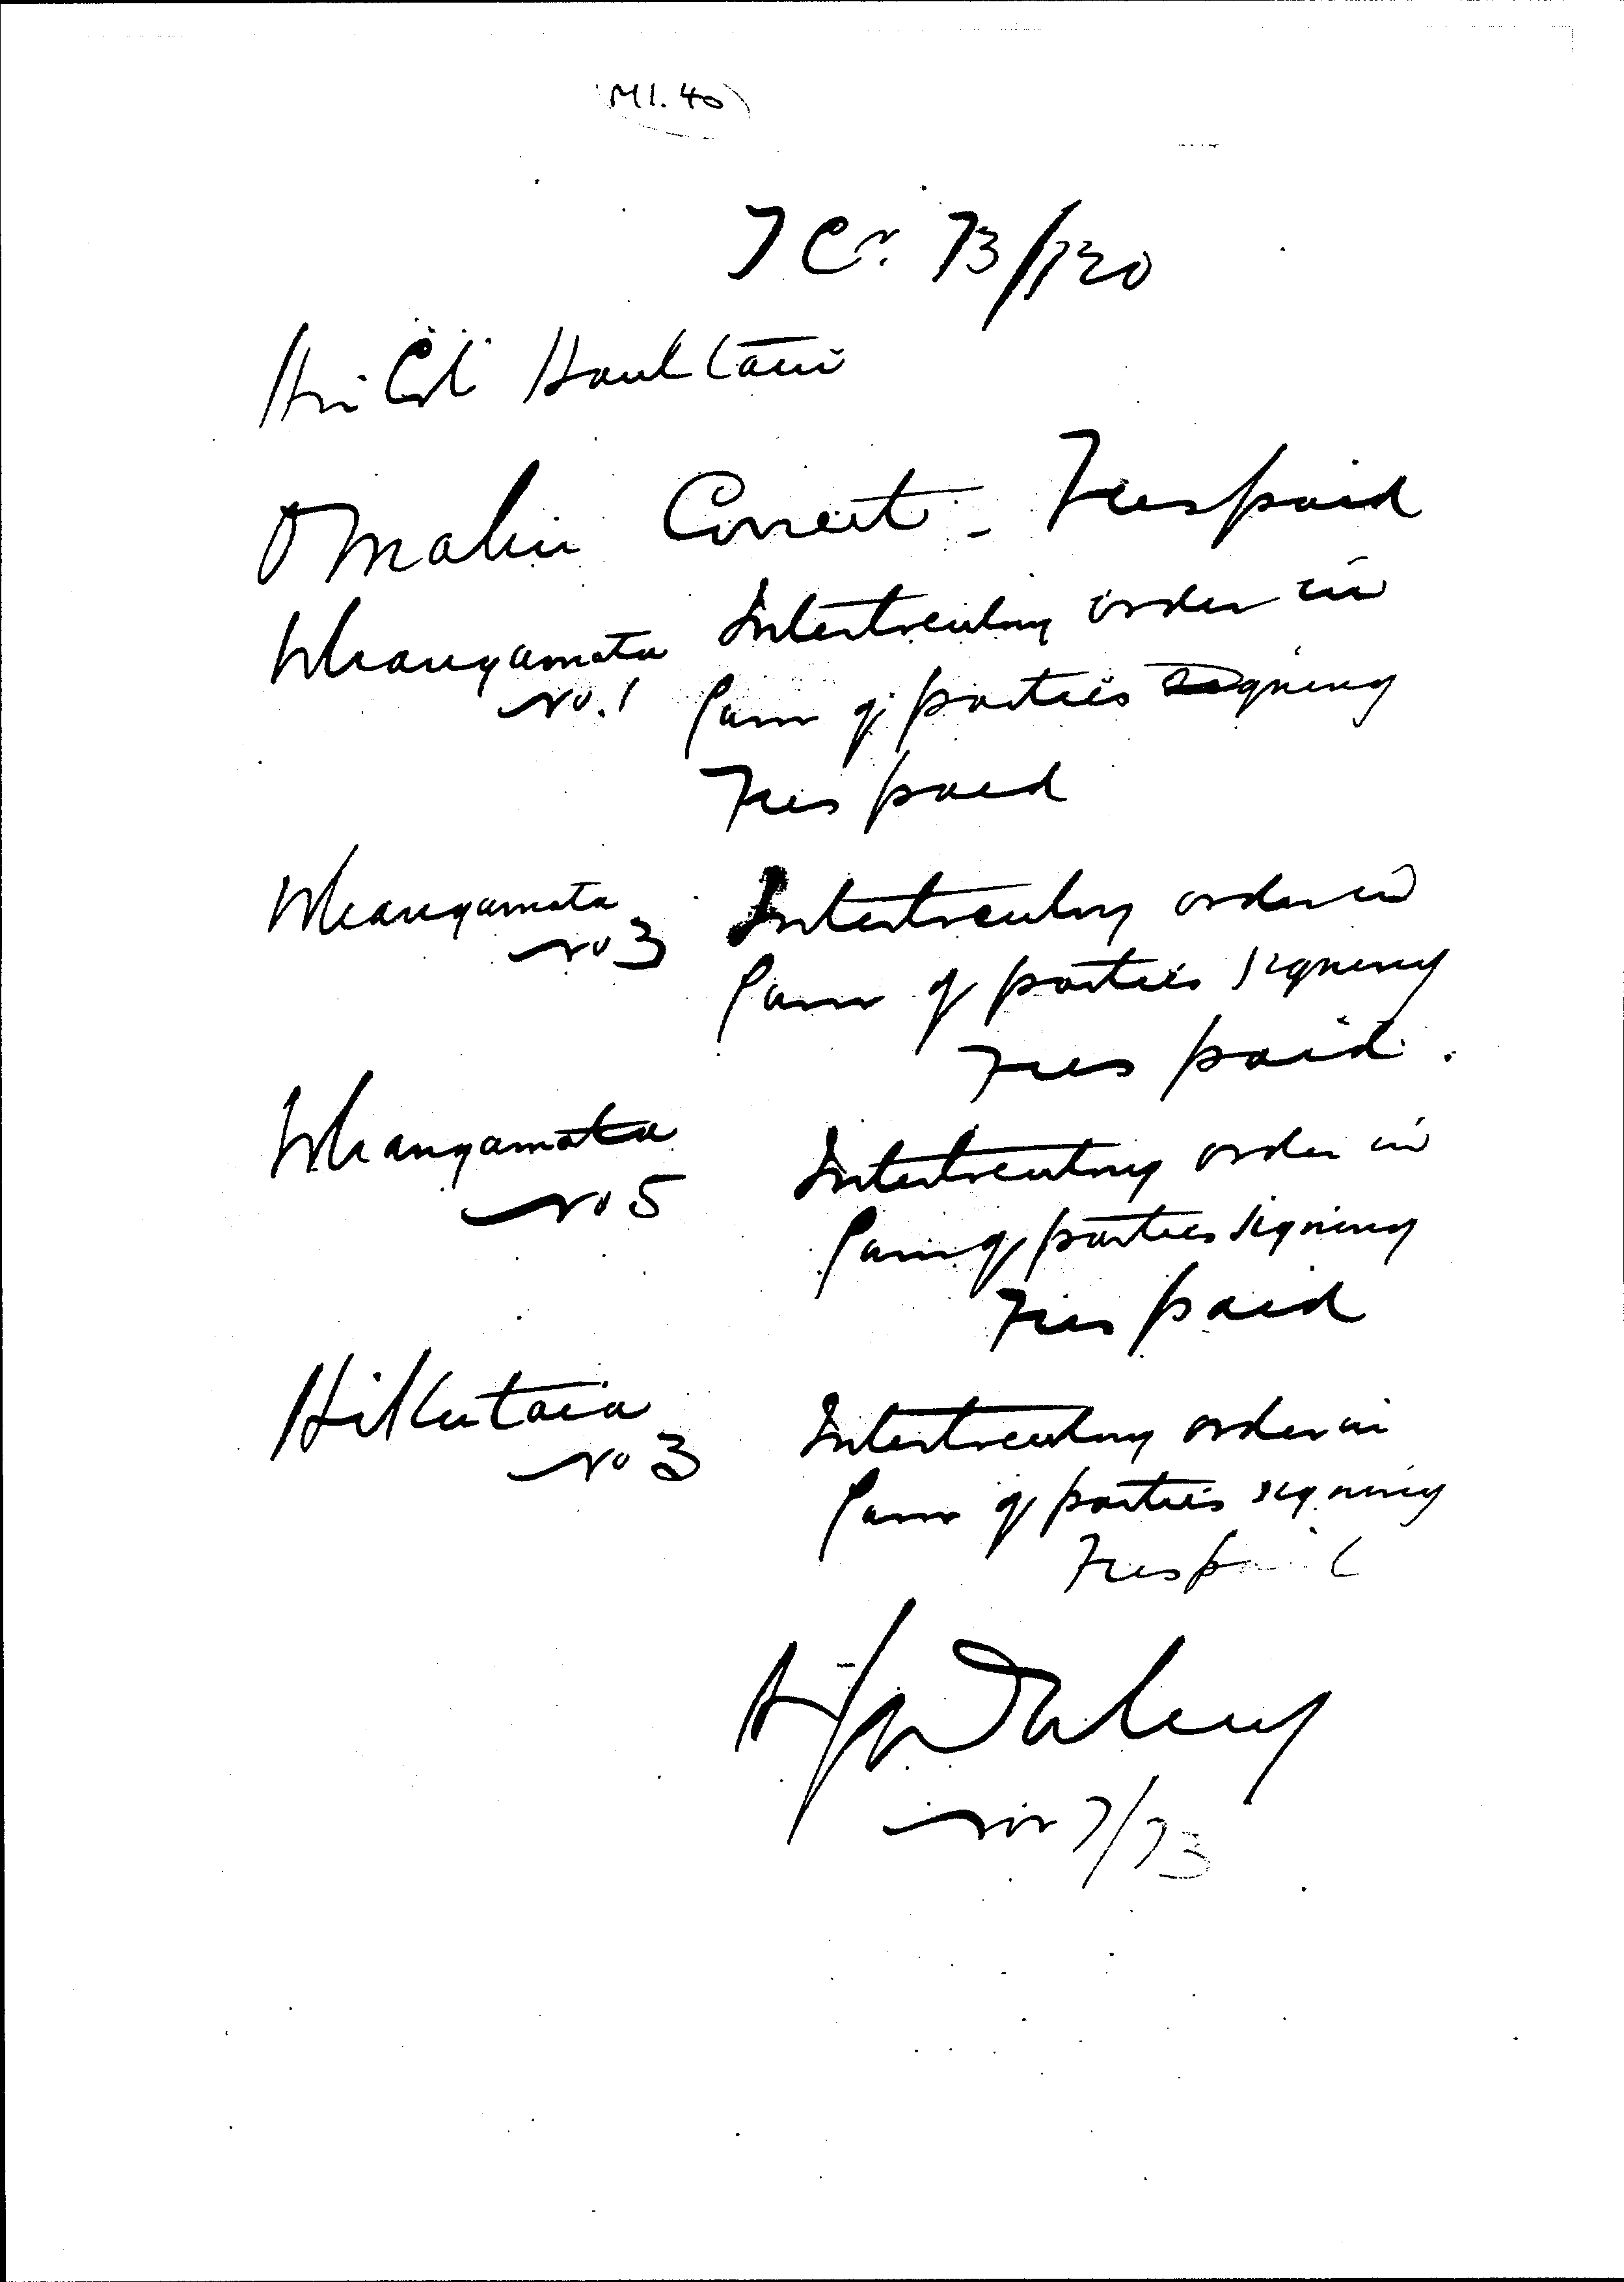 M1.40
7 Cr. 73/120
Hon Col Haultain
Omahu Correct - Fees paid
Whangamata Interlocutory order in
No. 1 favor of parties signing
Fees paid
Whangamata Interlocutory order in
No 3 favor of parties signing
Fees paid.
Whangamata Interlocutory order in
No 5 favor of parties signing
Fees paid
Hikutaia Interlocutory order in
No 3 favor of parties signing
Fees paid
Nov 7/73